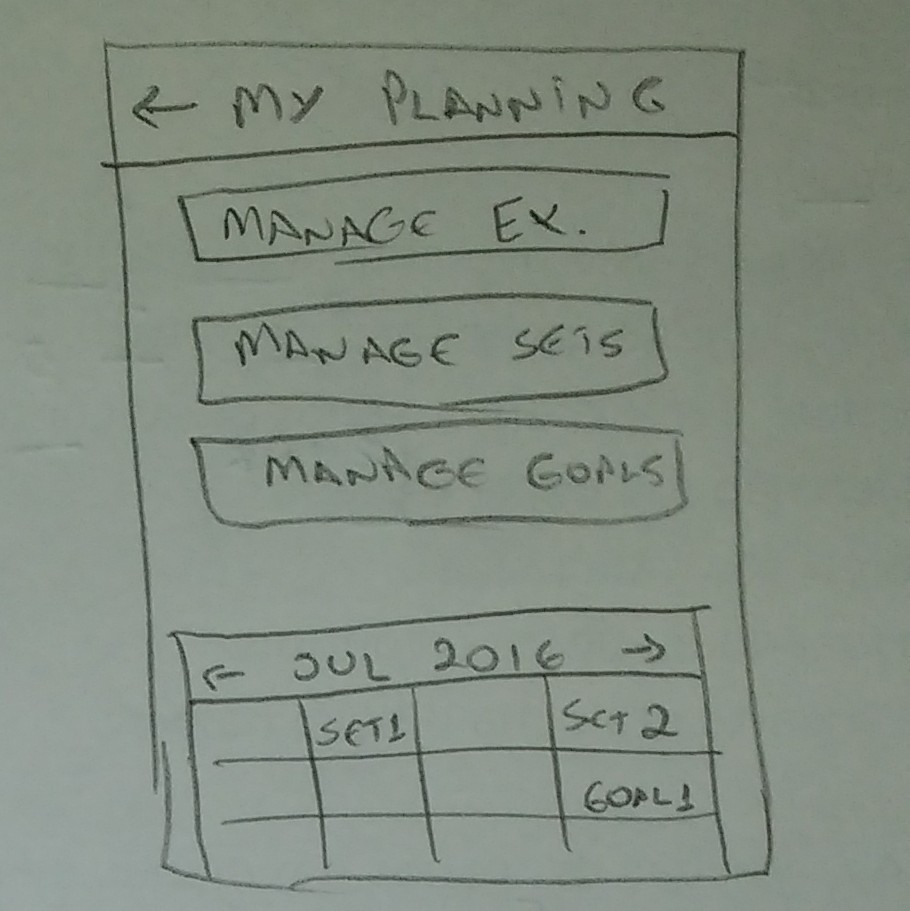 ← MY PLANNING
MANAGE EX.
MANAGE SETS
MANAGE GOALS
← JUL 2016 →
SET1 SET 2
GOAL1